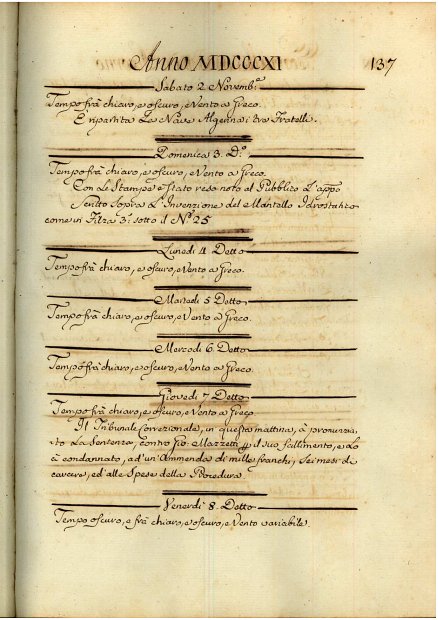 Anno MDCCCXI 137
Sabato 2 Novemb.e
Tempo frà chiaro, e oscuro, e Vento a Greco.
E ripartita La Nave Algerina i tre Fratelli.
Domenica 3. D.o
Tempo frà chiaro, e oscuro, e Vento a Greco.
Con Le Stampe è Stato reso noto al Pubblico L'appo
Scritto Sopra L'Invenzione del Mantello Idrostatico
come in Filza 3.a sotto il N.o 25
Lunedi 4 Detto
Tempo frà chiaro, e oscuro, e Vento a Greco.
Martedi 5 Detto
Tempo frà chiaro, e oscuro, e Vento a Greco.
Mercodi 6 Detto
Tempo frà chiaro, e oscuro, e Vento a Greco
Giovedi 7 Detto
Tempo frà chiaro, e oscuro, e Vento a Greco.
Il Tribunale Correzionale, in questa mattina, à pronunzia,
to La Sentenza, contro Gio. Mazzetti p il suo fallimento, e Lo
à condannato, ad'un'Ammenda di mille franchi, Sei mesi di
carcere, ed'alle Spese della Procedura.
Venerdi 8. Detto
Tempo oscuro, e frà chiaro, e oscuro, e Vento variabile.